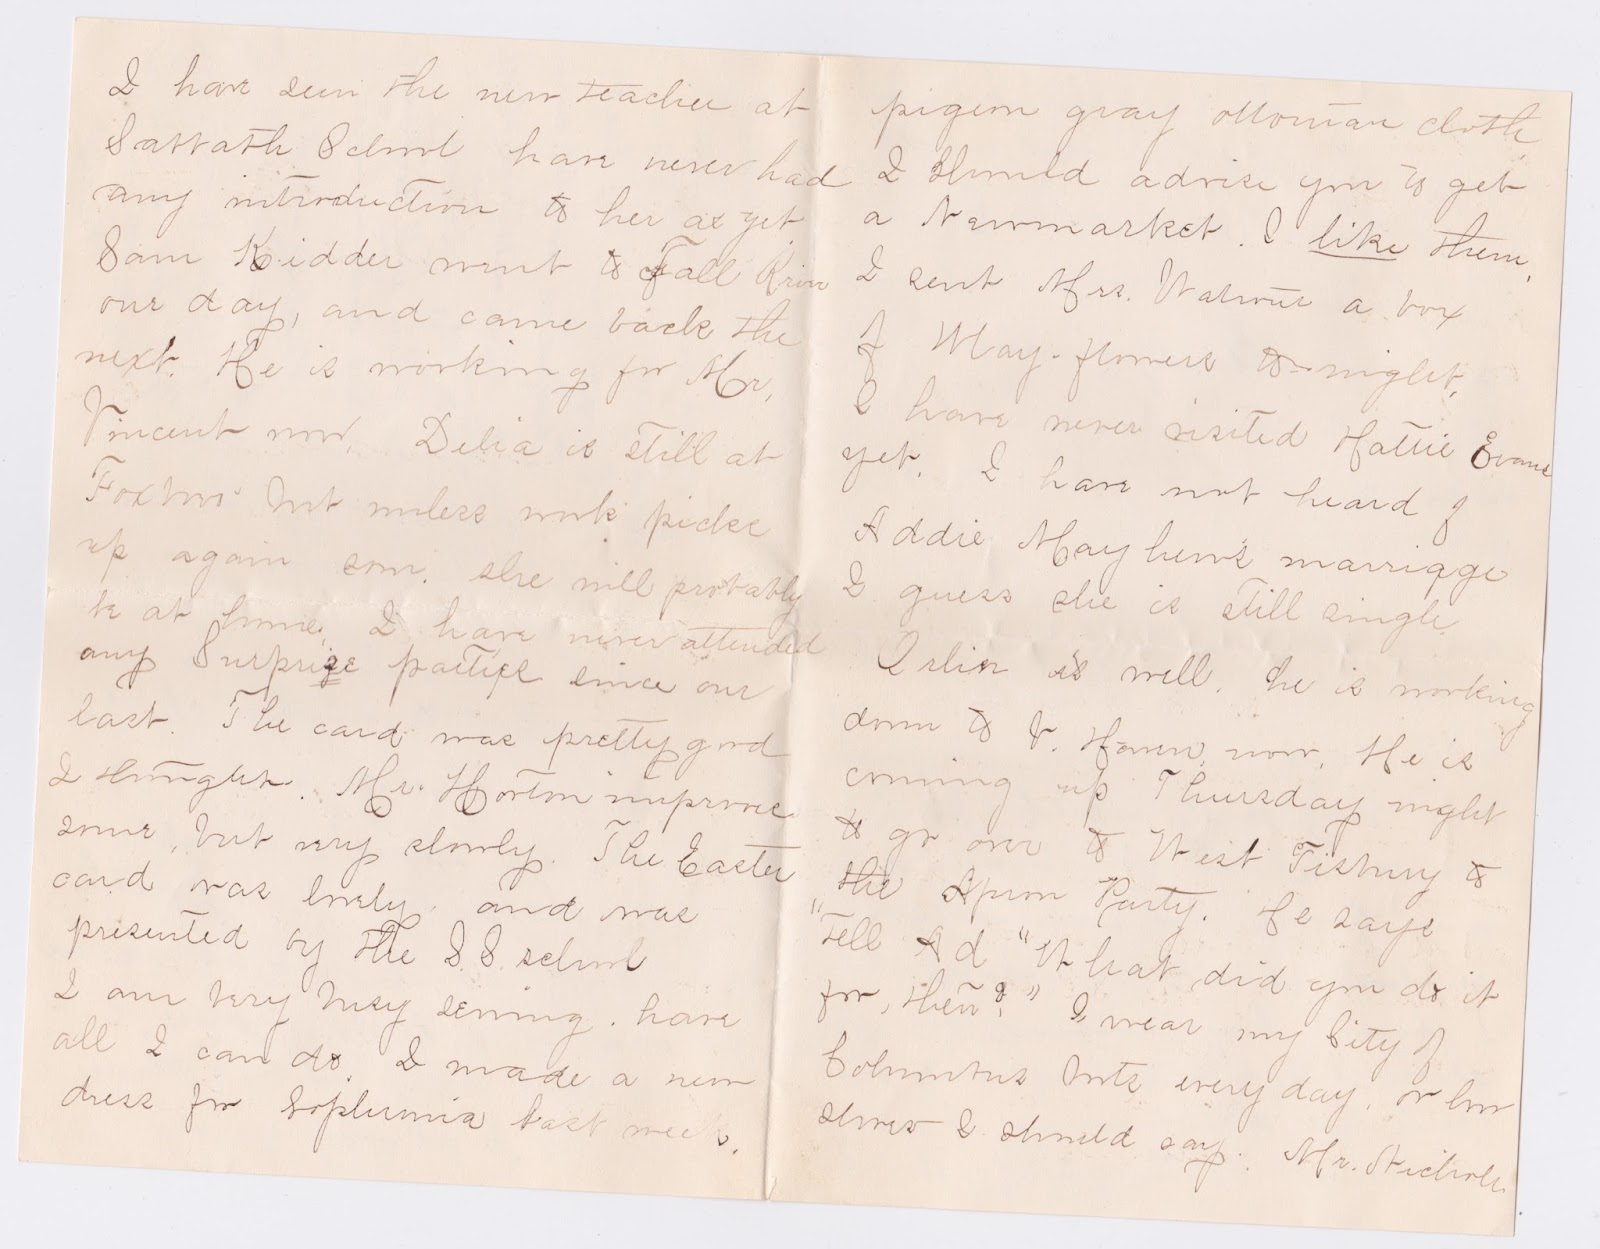 I have seen the new teacher at
Sabbath School have never had
any introduction to her as yet
Sam Kidder went to Fall River
one day, and came back the
next. He is working for Mr.
Vincent now. Delia is still at
Foxboro but unless work picks
up again soon, she will probably
be at home. I have never attended
any Surprise parties since our
last. The card was pretty good
I thought. Mr. Horton improves
some, but very slowly. The Easter
card was lovely and was
presented by the S.S. school
I am very busy sewing. have
all I can do. I made a new
dress for Sophronia last week.
pigeon gray ottoman cloth
I should advise you to get
a Newmarket. I like them.
I sent Mrs. a box
of May-flowers to-night.
I have never visited Hattie Evans
yet. I have not heard of
Addie Mayhew's marriage
I guess she is still single
Orlin is well. he is working
down to V. Haven, now. He is
coming up Thursday night
to go over to West Tisbury to
the Apron Party. He says
"Tell Ad "What did you do it
for, then?" I wear my City of
Columbus bots every day, or low
shoes I should say. Mr. Nichols